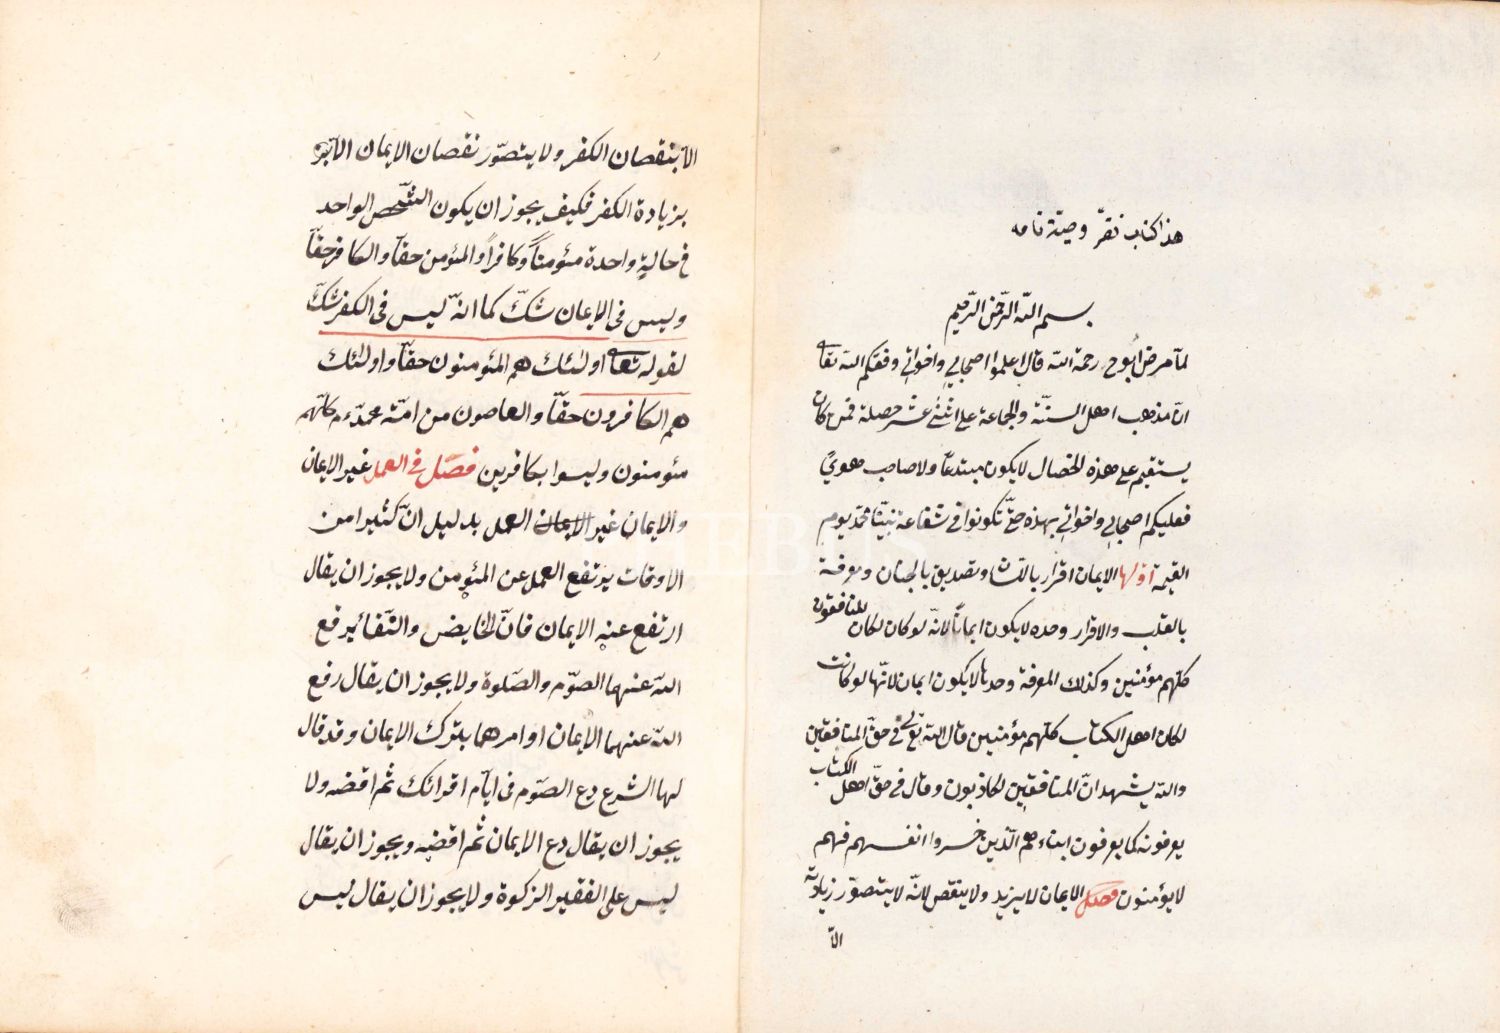 هذا كتاب نقرّ وصيّة نامه
بسم الله الرّحمن الرّحيم
لمّا مرض ابوح رحمة الله قال اعلموا اصحابي واخواني وفقكم الله تعالى
انّ مذهب اهل السنّة والجماعة على اثنى عشر خصلة فمن كان
يستقيم على هذه الخصال لا يكون مبتدعًا ولا صاحب هوىً
فعليكم اصحابي واخواني بهذه حتّى تكونوا في شفاعة نبيّنا محمّد يوم
القيمة اوّلها الايمان اقرار باللسان وتصديق بالجنان ومعرفة
بالقلب والاقرار وحده لا يكون ايمانًا لانّه لو كان لكان المنافقون
كلّهم مؤمنين وكذلك المعرفة وحدها لا يكون ايمان لانّها لو كانت
لكان اهل الكتاب كلّهم مؤمنين قال الله تعالى في حقّ المنافقين
والله يشهد انّ المنافقين لكاذبون وقال في حقّ اهل الكتاب
يعرفونه كما يعرفون ابناءهم الّذين خسروا انفسهم فهم
لا يؤمنون فصل الايمان لا يزيد ولا ينقص لانّه لا يتصوّر زيادته
الّا
الّا بنقصان الكفر ولا يتصوّر نقصان الايمان الّا
بزيادة الكفر فكيف يجوز ان يكون الشّخص الواحد
في حالةٍ واحدة مئومنًا وكافرًا والمئومن حقّا والكافر حقّا
وليس في الايمان شكّ كما انّه ليس في الكفر شكّ
لقوله تعالى اولئك هم المئومنون حقّا واولئك
هم الكافرون حقّا والعاصون من امّة محمّد ءم كلّهم
مئومنون وليسوا بكافرين فصل في العمل غير الايمان
والايمان غير الايمان العمل بدليل انّ كثيرا من
الاوقات يرتفع العمل عن المئومن ولا يجوز ان يقال
ارتفع عنه الايمان فانّ الحايض والنّفاء يرفع
الله عنهما الصّوم والصّلوة ولا يجوز ان يقال رفع
الله عنهما الايمان او امرهما بترك الايمان وقد قال
لها الشرع دع الصّوم في ايّام اقرائك ثم اقضه ولا
يجوز ان يقال دع الايمان ثم اقضه ويجوز ان يقال
ليس على الفقير الزكوة ولا يجوز ان يقال ليس